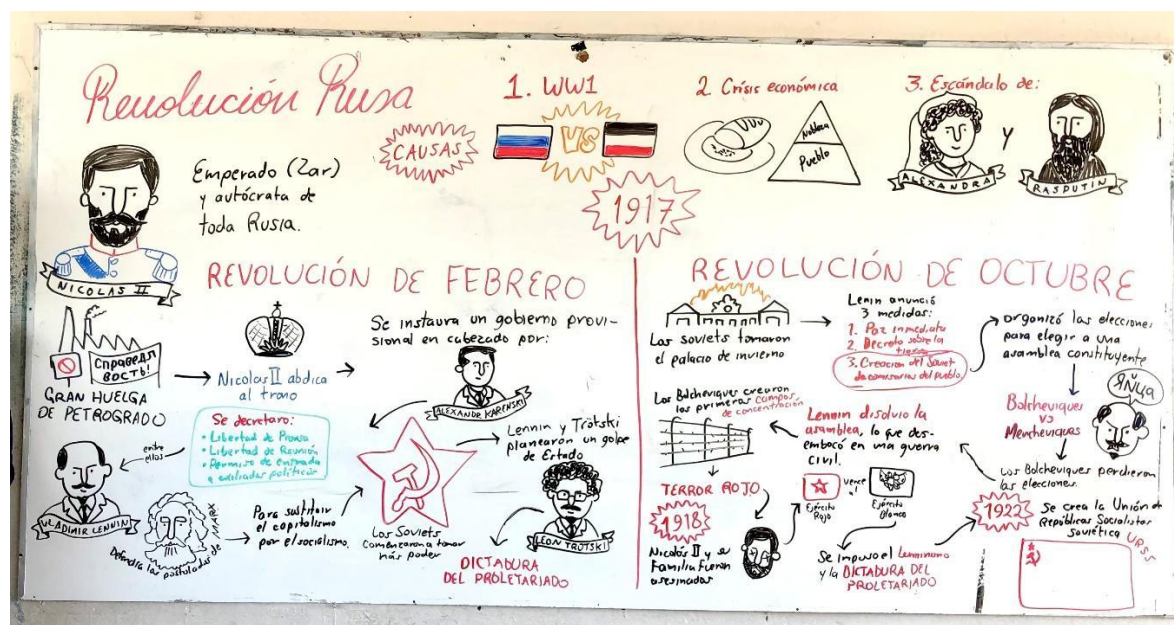 Revolución Rusa
CAUSAS
1. WW1
VS
2. Crisis económica
Nobleza
Pueblo
3. Escándalo de:
ALEXANDRA
y
RASPUTIN
1917
Emperado (Zar)
y autócrata de
toda Rusia.
NICOLAS II
REVOLUCIÓN DE FEBRERO
Справедл
вость!
GRAN HUELGA
DE PETROGRADO
Nicolas II abdica
al trono
Se instaura un gobierno provi-
sional en cabezado por:
ALEXANDR KARENSKI
Se decretaro:
• Libertad de Prensa
• Libertad de Reunión
• Permiso de entrada
a exiliados políticos
entre
ellos
VLADIMIR LENNIN
Defendía los postulados de MARX
Para sustituir
el capitalismo
por el socialismo.
Los Soviets
comenzaron a tomar
más poder
Lennin y Trotski
planearon un golpe
de Estado
LEON TROTSKI
DICTADURA
DEL PROLETARIADO
REVOLUCIÓN DE OCTUBRE
Los soviets tomaron
el palacio de invierno
Lenin anunció
3 medidas:
1. Paz inmediata
2. Decreto sobre la
tierra
3. Creación del Soviet
de comisarios del pueblo
organizó las elecciones
para elegir a una
asamblea constituyente
Bolcheviques
vs
Mencheviques
Los Bolcheviques perdieron
las elecciones.
Lennin disolvio la
asamblea, lo que des-
embocó en una guerra
civil.
Los Bolcheviques crearon
los primeros campos
de concentración
TERROR ROJO
1918
Nicolás II y su
Familia fueron
asesinados
Ejército
Rojo
vence
al
Ejército
Blanco
Se impuso el Leninismo
y la DICTADURA DEL
PROLETARIADO
1922
Se crea la Unión de
Repúblicas Socialistas
soviética URSS